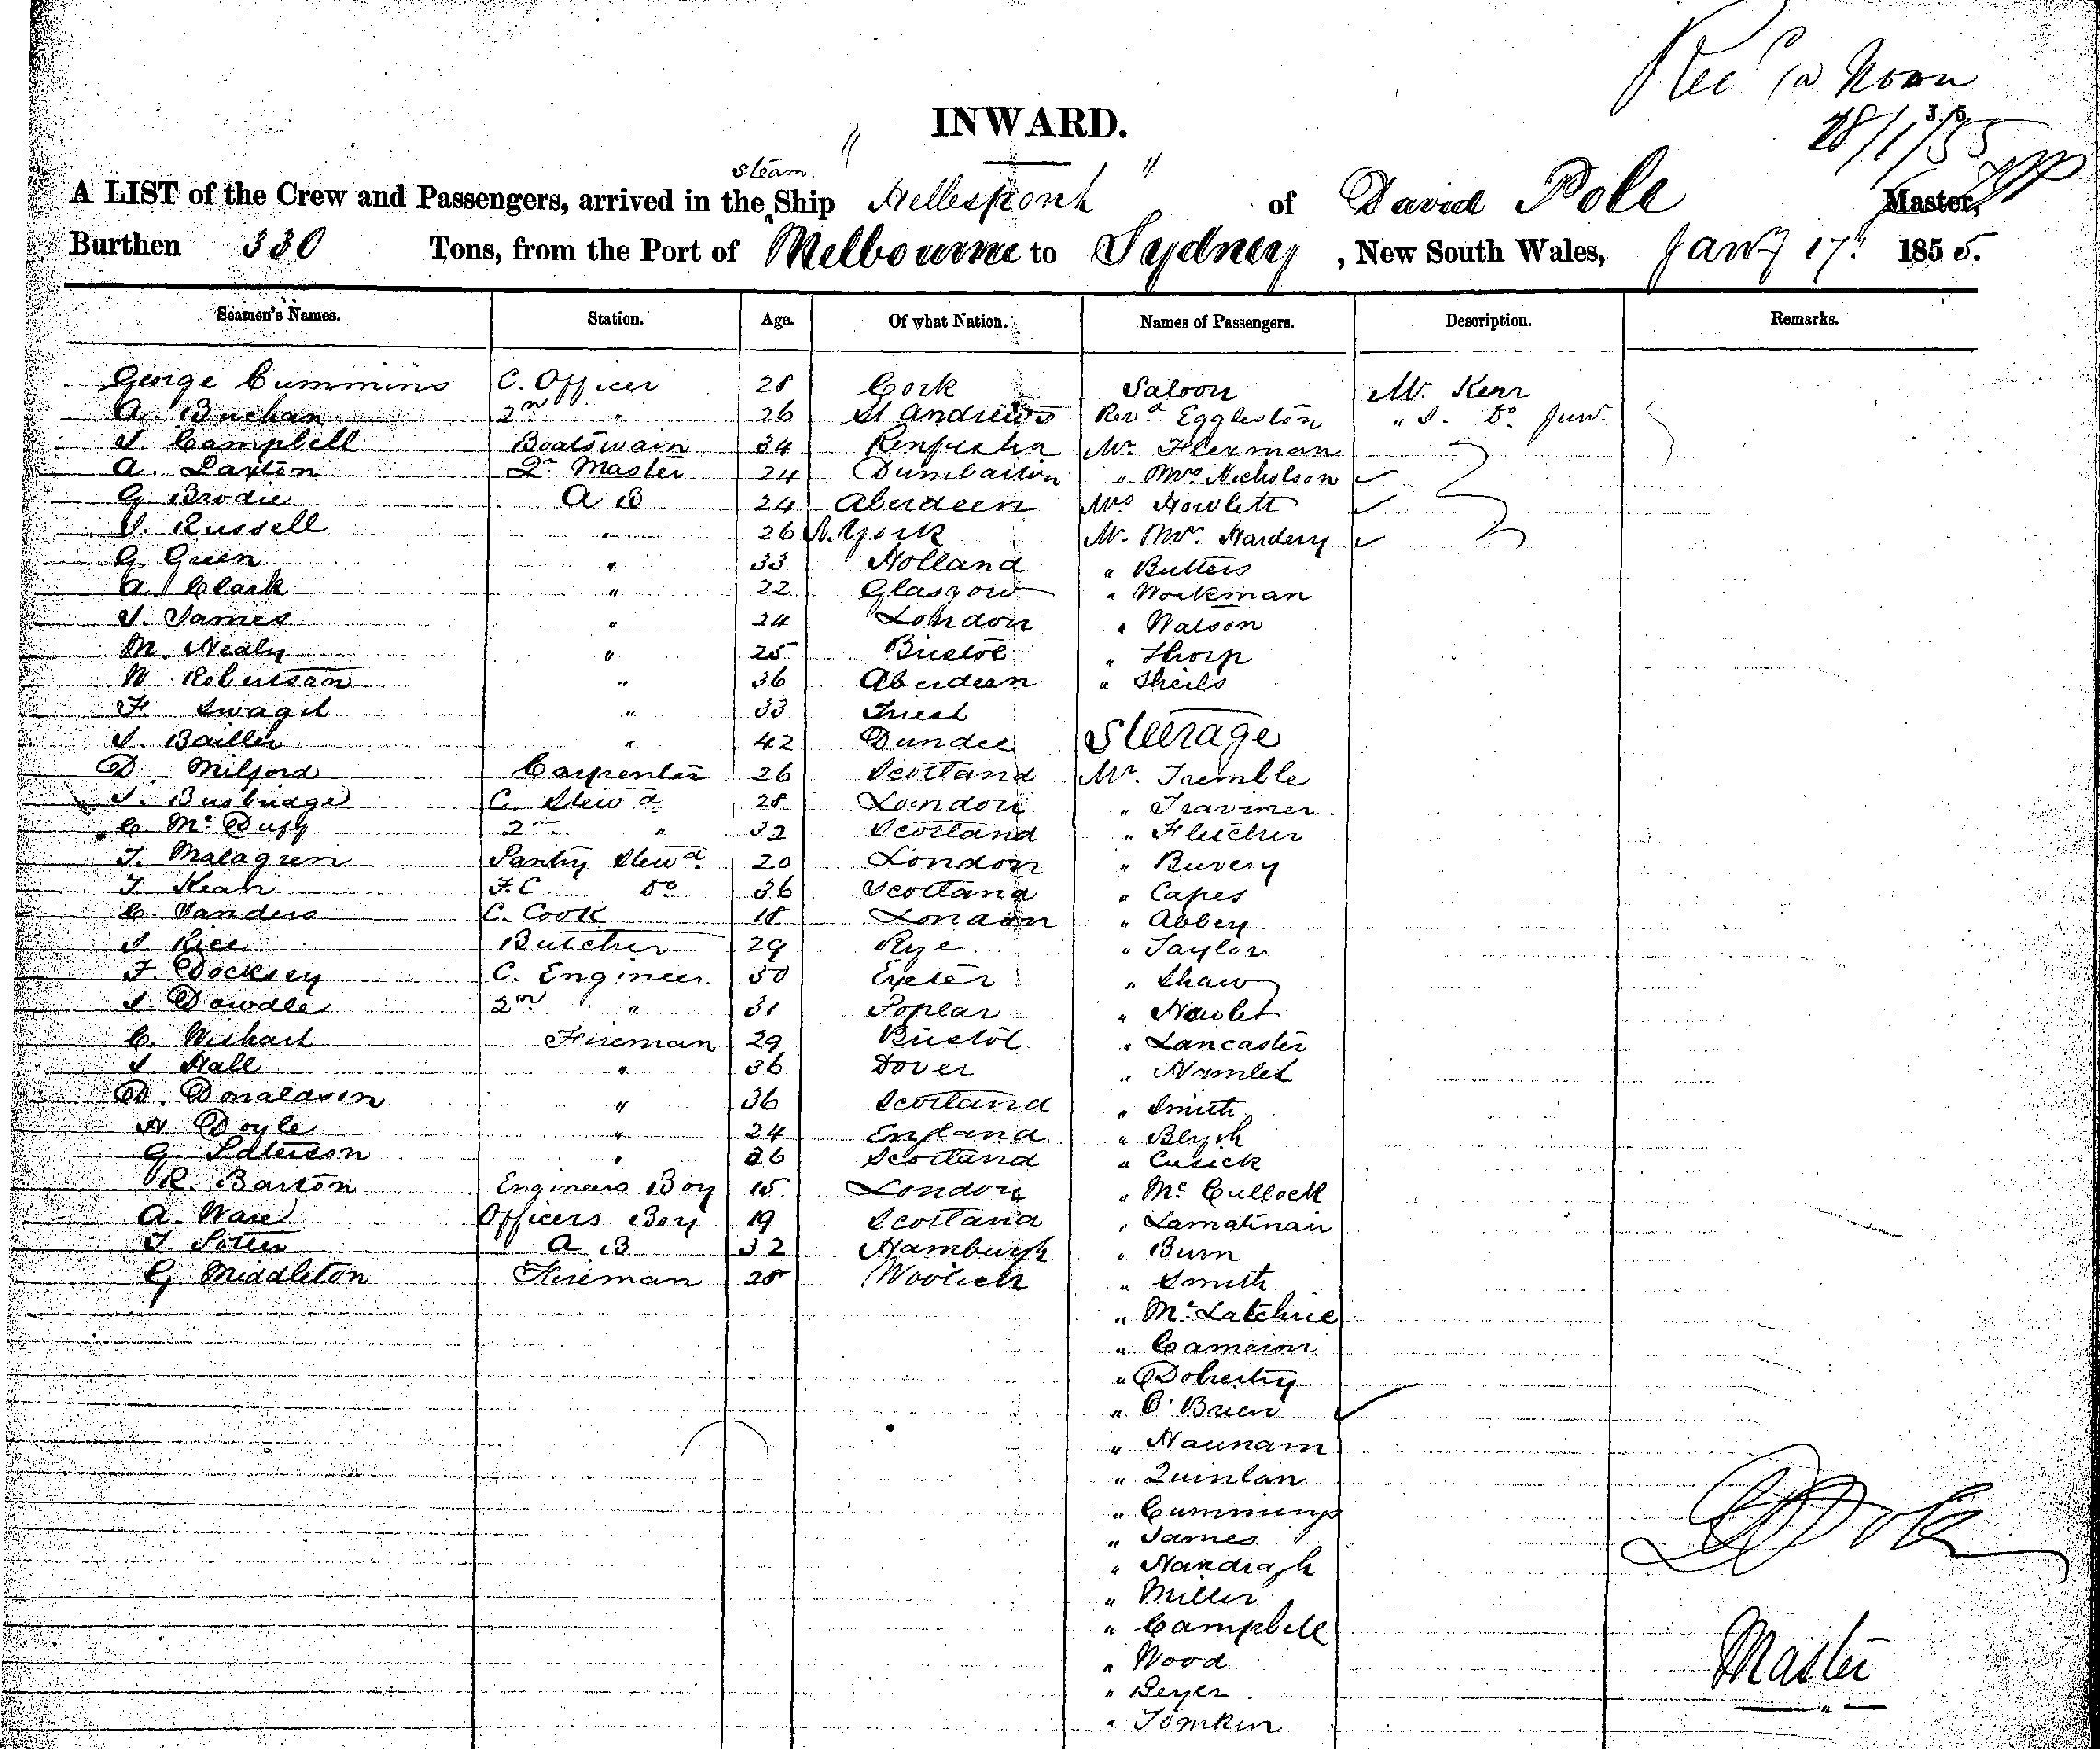 Rec @ Noon
18/1/55
INWARD.
A LIST of the Crew and Passengers, arrived in the Steam Ship "Hellespont" of David Pole Master,
Burthen 330 Tons, from the Port of Melbourne to Sydney, New South Wales, Jany 17th 1855.
Seamen's Names. Station. Age. Of what Nation. Names of Passengers. Description. Remarks.
George Cummins C. Officer 28 Cork Saloon Mr. Kerr
A. Buchan 2nd " 26 St Andrews Revd Eggleston " J. Do Junr.
J. Campbell Boatswain 34 Mr Flexman
A. Paxton Qr Master 24 Dumbarton " Mrs Nicholson
G Brodie A B 24 Aberdeen Mrs Howlett
J. Russell " 26 N. York Mr. Mrs. Hardery
G Green " 33 Holland " Butters
A. Clark " 22 Glasgow " Workman
J. James " 24 London " Watson
M. Nealy " 25 Bristol " Thorp
W Robertson " 36 Aberdeen " Sheils
F. Swagit " 33 Triest
J. Bailler " 42 Dundee Steerage
D. Milford Carpenter 26 Scotland Mr. Tremble
J. Busbridge C. Stewd 28 London " Travimer
C. McDuff 2nd " 32 Scotland " Fletcher
J. Malagren Pantry Stewd 20 London " Buvery
J. Kean F.C. Do 36 Scotland " Capes
C. Sanders C. Cook 18 London " Abbey
J Rice Butcher 29 Rye " Taylor
F. Docksey C. Engineer 30 Exeter " Shaw
J. Dowdle 2nd " 31 Poplar " Howlet
C. Wishart Fireman 29 Bristol " Lancaster
J Hall " 36 Dover " Hamlet
D. Donaldson " 36 Scotland " Smith
H Doyle " 24 England " Blyth
G. Paterson " 26 Scotland " Cusick
R. Barton Engineers Boy 15 London " McCullock
A. Ware Officers Boy 19 Scotland " Lamatinair
J. Potter A B 32 Hamburgh " Burn
G Middleton Fireman 28 Woolich " Smith
" McLatchie
" Cameron
" Doherty
" O'Brien
" Haunam
" Quinlan
" Cummings
" James
" Handragh
" Miller
" Campbell
" Wood
" Beyer
" Tomkin
D Pole
Master